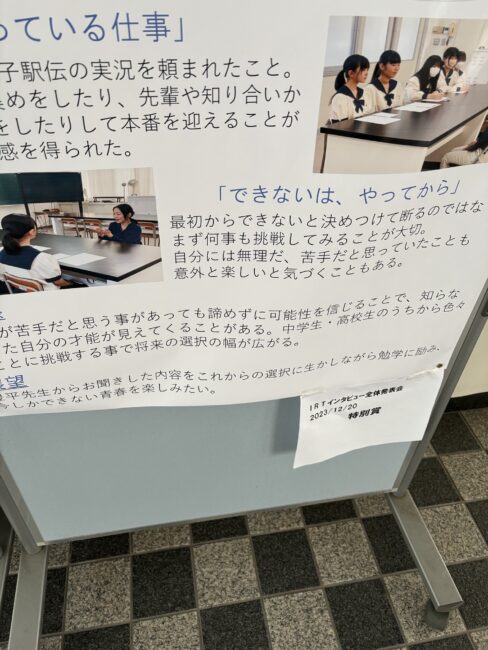 っている仕事」
子駅伝の実況を頼まれたこと。
集めをしたり、先輩や知り合いか
をしたりして本番を迎えることが
感を得られた。
「できないは、やってから」
最初からできないと決めつけて断るのではな
まず何事も挑戦してみることが大切。
自分には無理だ、苦手だと思っていたことも
意外と楽しいと気づくこともある。
が苦手だと思う事があっても諦めずに可能性を信じることで、知らな
た自分の才能が見えてくることがある。中学生・高校生のうちから色々
ことに挑戦する事で将来の選択の幅が広がる。
展望
平先生からお聞きした内容をこれからの選択に生かしながら勉学に励み、
今しかできない青春を楽しみたい。
IRTインタビュー全体発表会
2023/12/20
特別賞